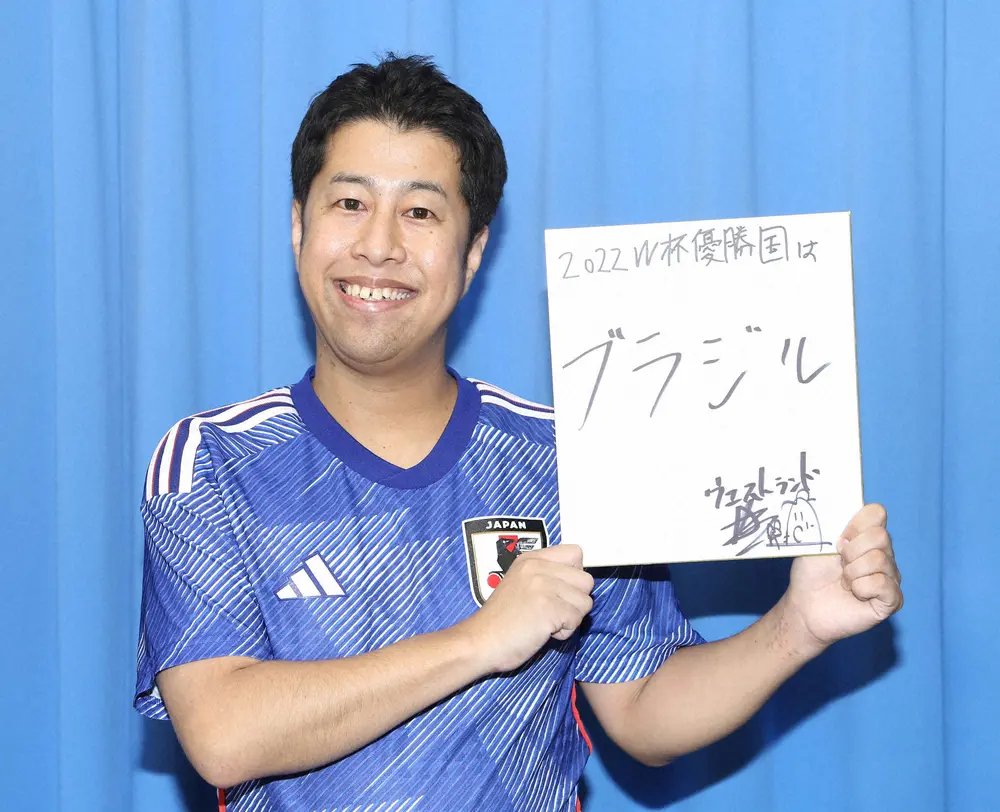 2022W杯優勝国は
ブラジル
ウエストランド
JAPAN